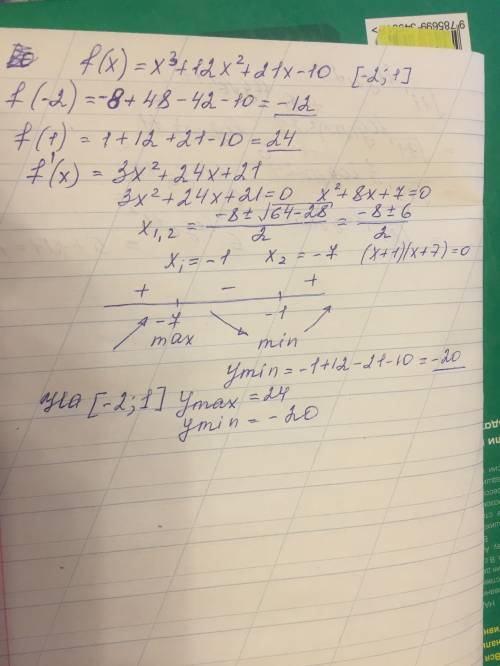 f(x) = x³+12x²+21x-10 [-2;1]
f(-2)=-8+48-42-10=-12
f(1)=1+12+21-10=24
f'(x) = 3x²+24x+21
3x²+24x+21=0 x²+8x+7=0
x₁,₂ = (-8±√(64-28))/2 = (-8±6)/2
x₁=-1 x₂=-7 (x+1)(x+7)=0
+ - +
-7 -1
max min
ymin=-1+12-21-10=-20
На [-2;1] ymax=24
ymin=-20
9 785699